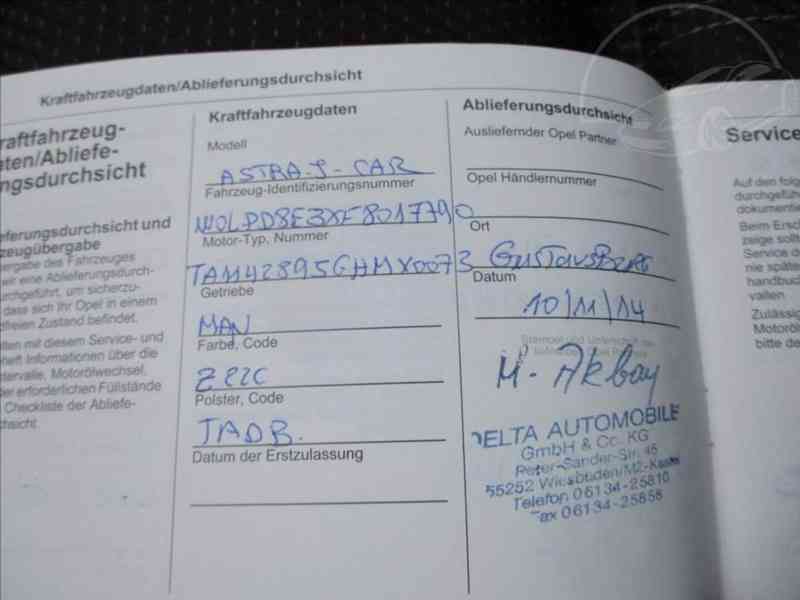 Kraftfahrzeugdaten/Ablieferungsdurchsicht
raftfahrzeug-
aten/Abliefe-
ngsdurchsicht
eferungsdurchsicht und
zeugübergabe
ergabe des Fahrzeuges
wir eine Ablieferungsdurch-
urchgeführt, um sicherzu-
dass sich Ihr Opel in einem
dfreien Zustand befindet.
ten mit diesem Service- und
heft Informationen über die
tervalle, Motorölwechsel,
der erforderlichen Füllstände
Checkliste der Abliefe-
hsicht.
Kraftfahrzeugdaten
Modell
ASTRA-J-CAR
Fahrzeug-Identifizierungsnummer
W0LPD8E3XF8017790
Motor-Typ, Nummer
Getriebe
MAN
Farbe, Code
Z22C
Polster, Code
TADB.
Datum der Erstzulassung
Ablieferungsdurchsicht
Ausliefernder Opel Partner
Opel Händlernummer
Ort
GUSTAVSBURG
Datum
10/11/14
Stempel und Unterschrift des
M. Akbay
DELTA AUTOMOBILE
GmbH & Co. KG
Peter-Sander-Str. 45
55252 Wiesbaden/Mz-Kastel
Telefon 06134-25810
Fax 06134-25858
Service
Auf den folg
durchgeführ
dokumentie
Beim Ersch
zeige sollt
Service d
nie späte
handbuc
vallen.
Zulässig
Motoröl
bitte de